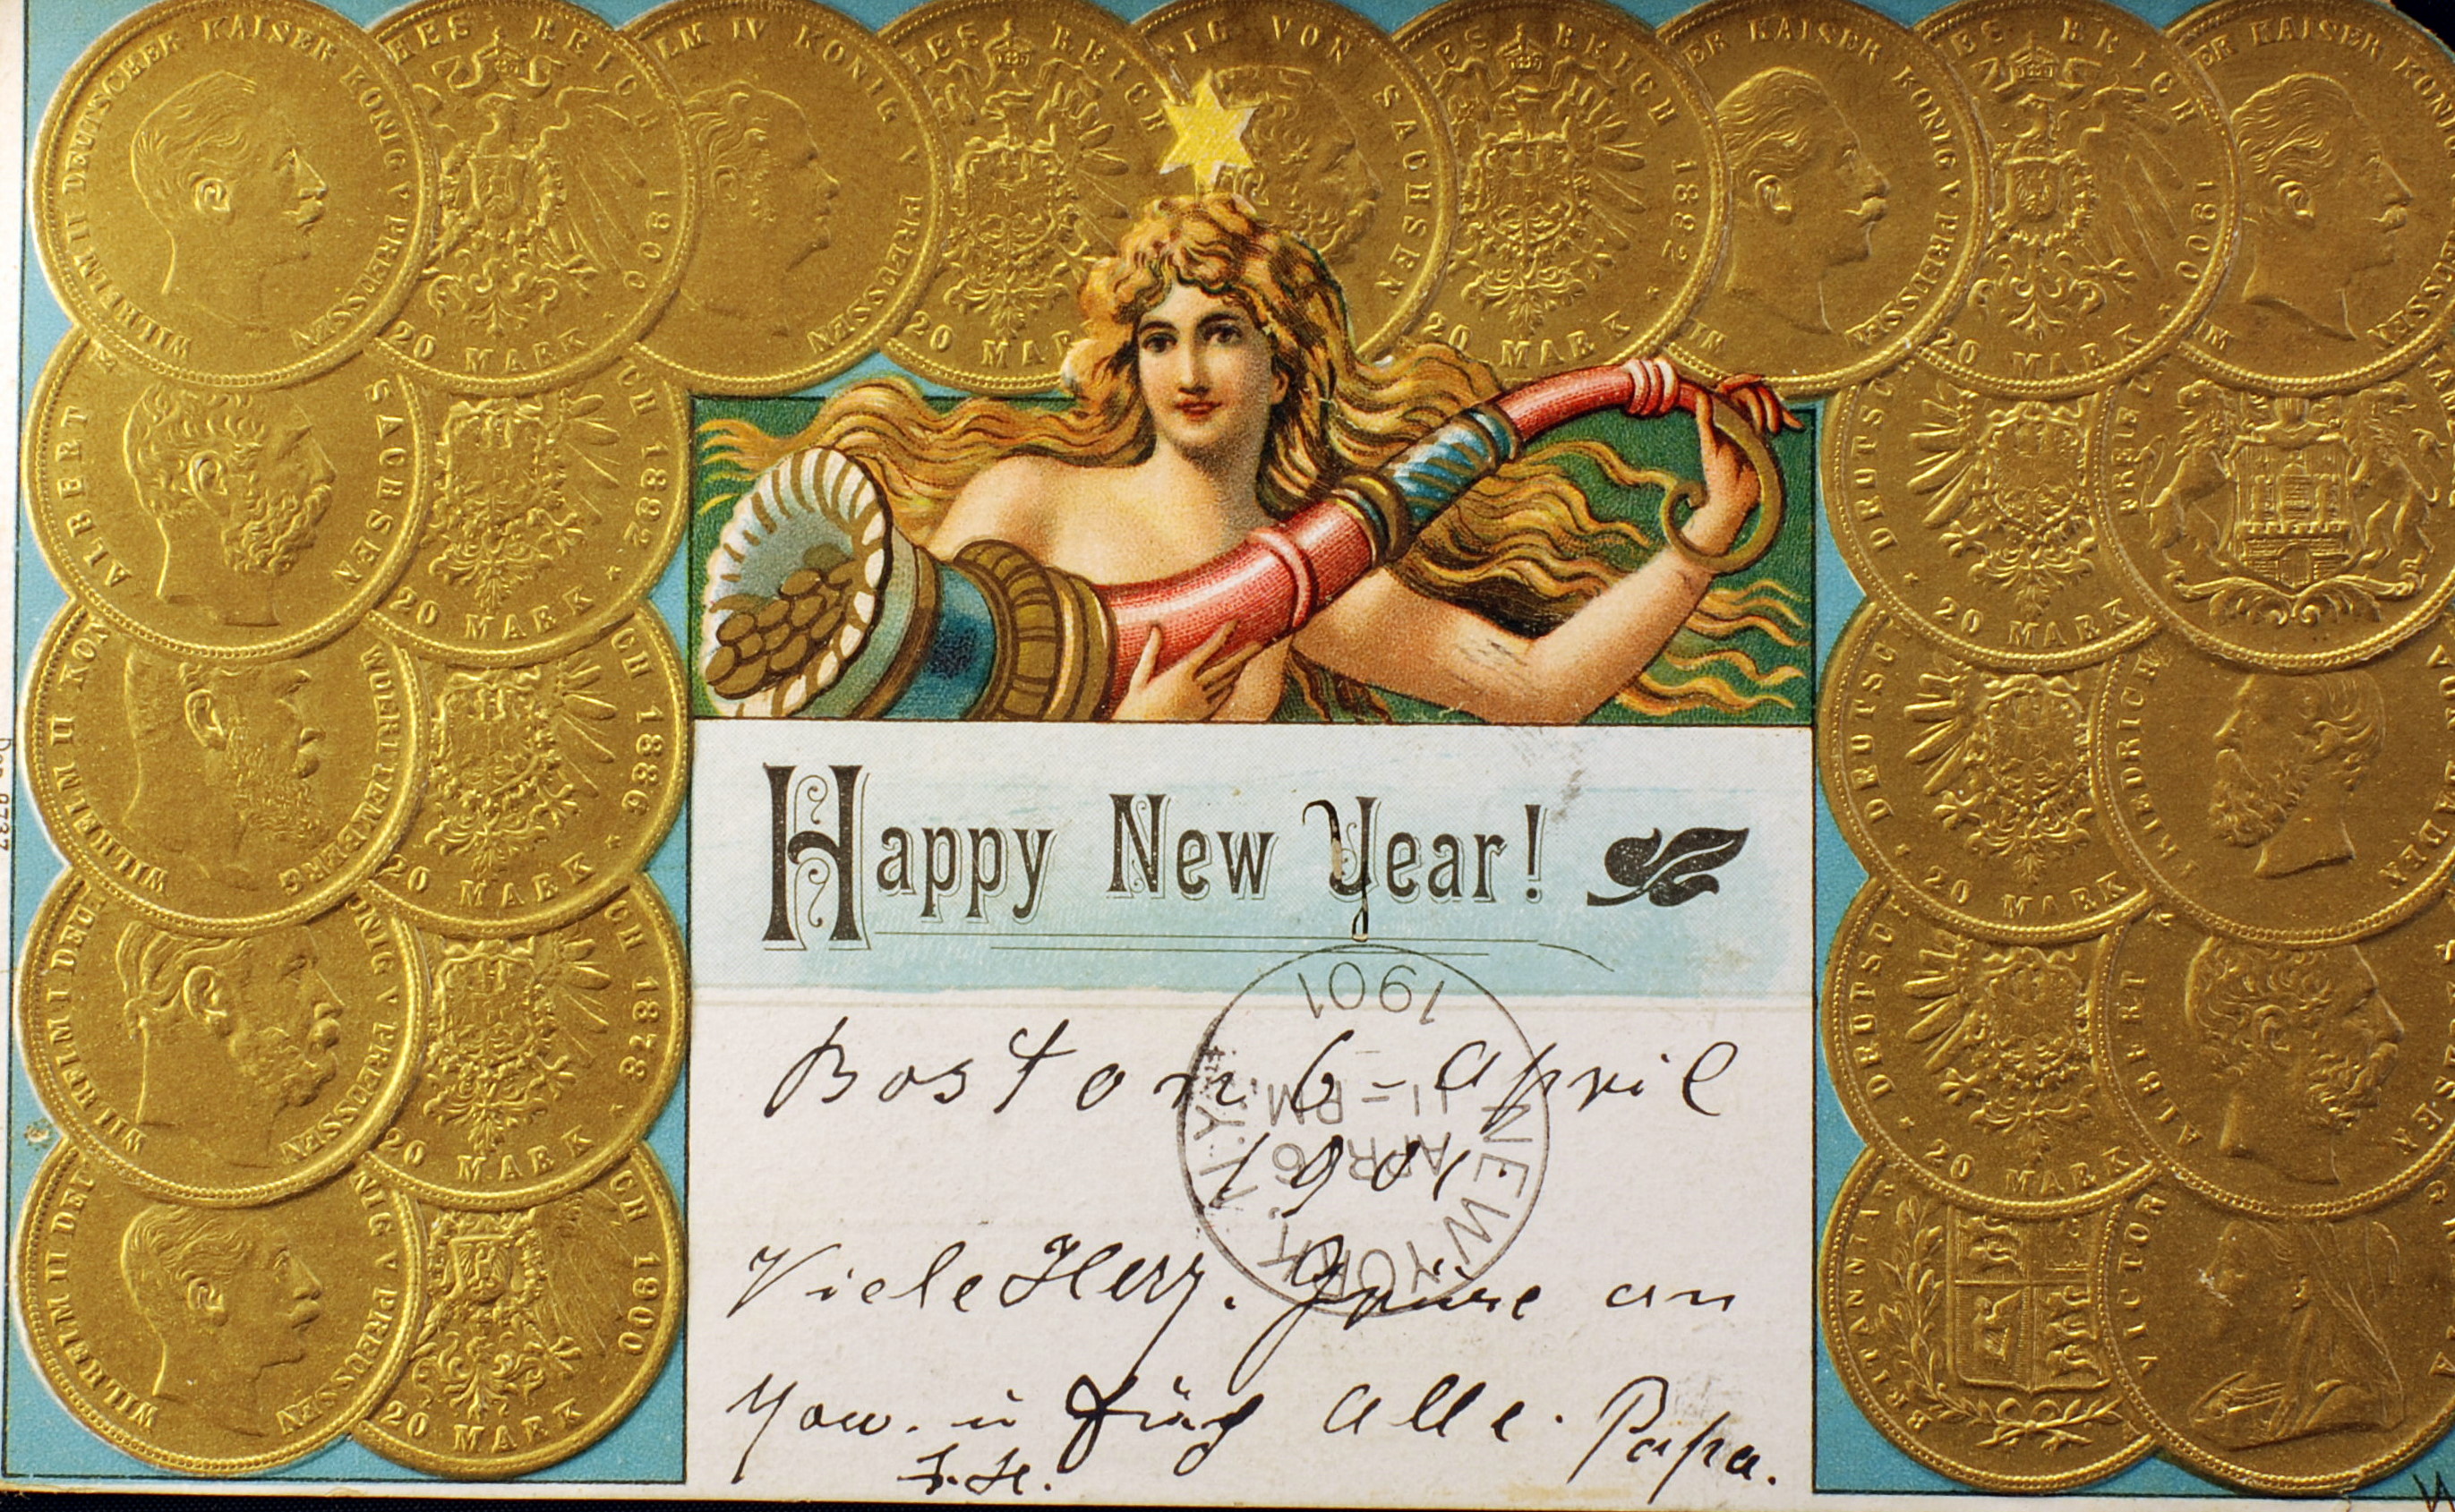 WILHELM II DEUTSCHER KAISER KÖNIG V. PREUSSEN
HES REICH 1900
20 MARK
LM IV KÖNIG V. PREUSSEN
HES REICH
20 MARK
NIG VON SACHSEN
ES REICH 1892
20 MARK
ER KAISER KÖNIG V. PREUSSEN
LM
ES REICH 1900
20 MARK
ER KAISER KÖNIG
REUSSEN
LM
ALBERT
SACHSEN
CH 1882
20 MARK
WILHELM II KÖN
WUERTTEMBERG
CH 1886
20 MARK
WILHELM I DEU
ÖNIG V. PREUSSEN
CH 1878
20 MARK
WILHELM II DEU
NIG V. PREUSSEN
CH 1900
20 MARK
DEUTSC
20 MARK
FREIE
DEUTSC
20 MARK
FRIEDRICH
BADEN
DEUTSC
20 MARK
ALBERT V
SEN
BRITANNIA
VICTOR
A
Happy New Year!
1901
11-PM
APR 6
NEW YORK. N.Y.
Boston 6-April
1901
Viele Herz. Grüsse an
You. ü für Alle. Papa.
F. H.